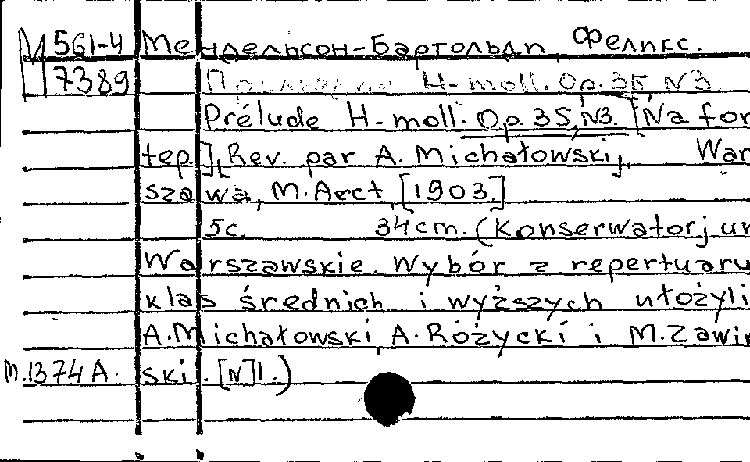 М 561-4 Мендельсон-Бартольди, Феликс.
7389 H-moll. Op. 35, N3
Prélude H-moll. Op. 35, N3. [Na for
tep.], Rev. par A. Michałowski, War
szawa, M. Arct, [1903.]
5c. 34cm. (Konserwatorjum
Warszawskie. Wybór z repertuaru
klas średnich i wyższych ułożyli
A. Michałowski, A. Różycki i M. Zawir
M. 1374 A. ski. [N] 1.)